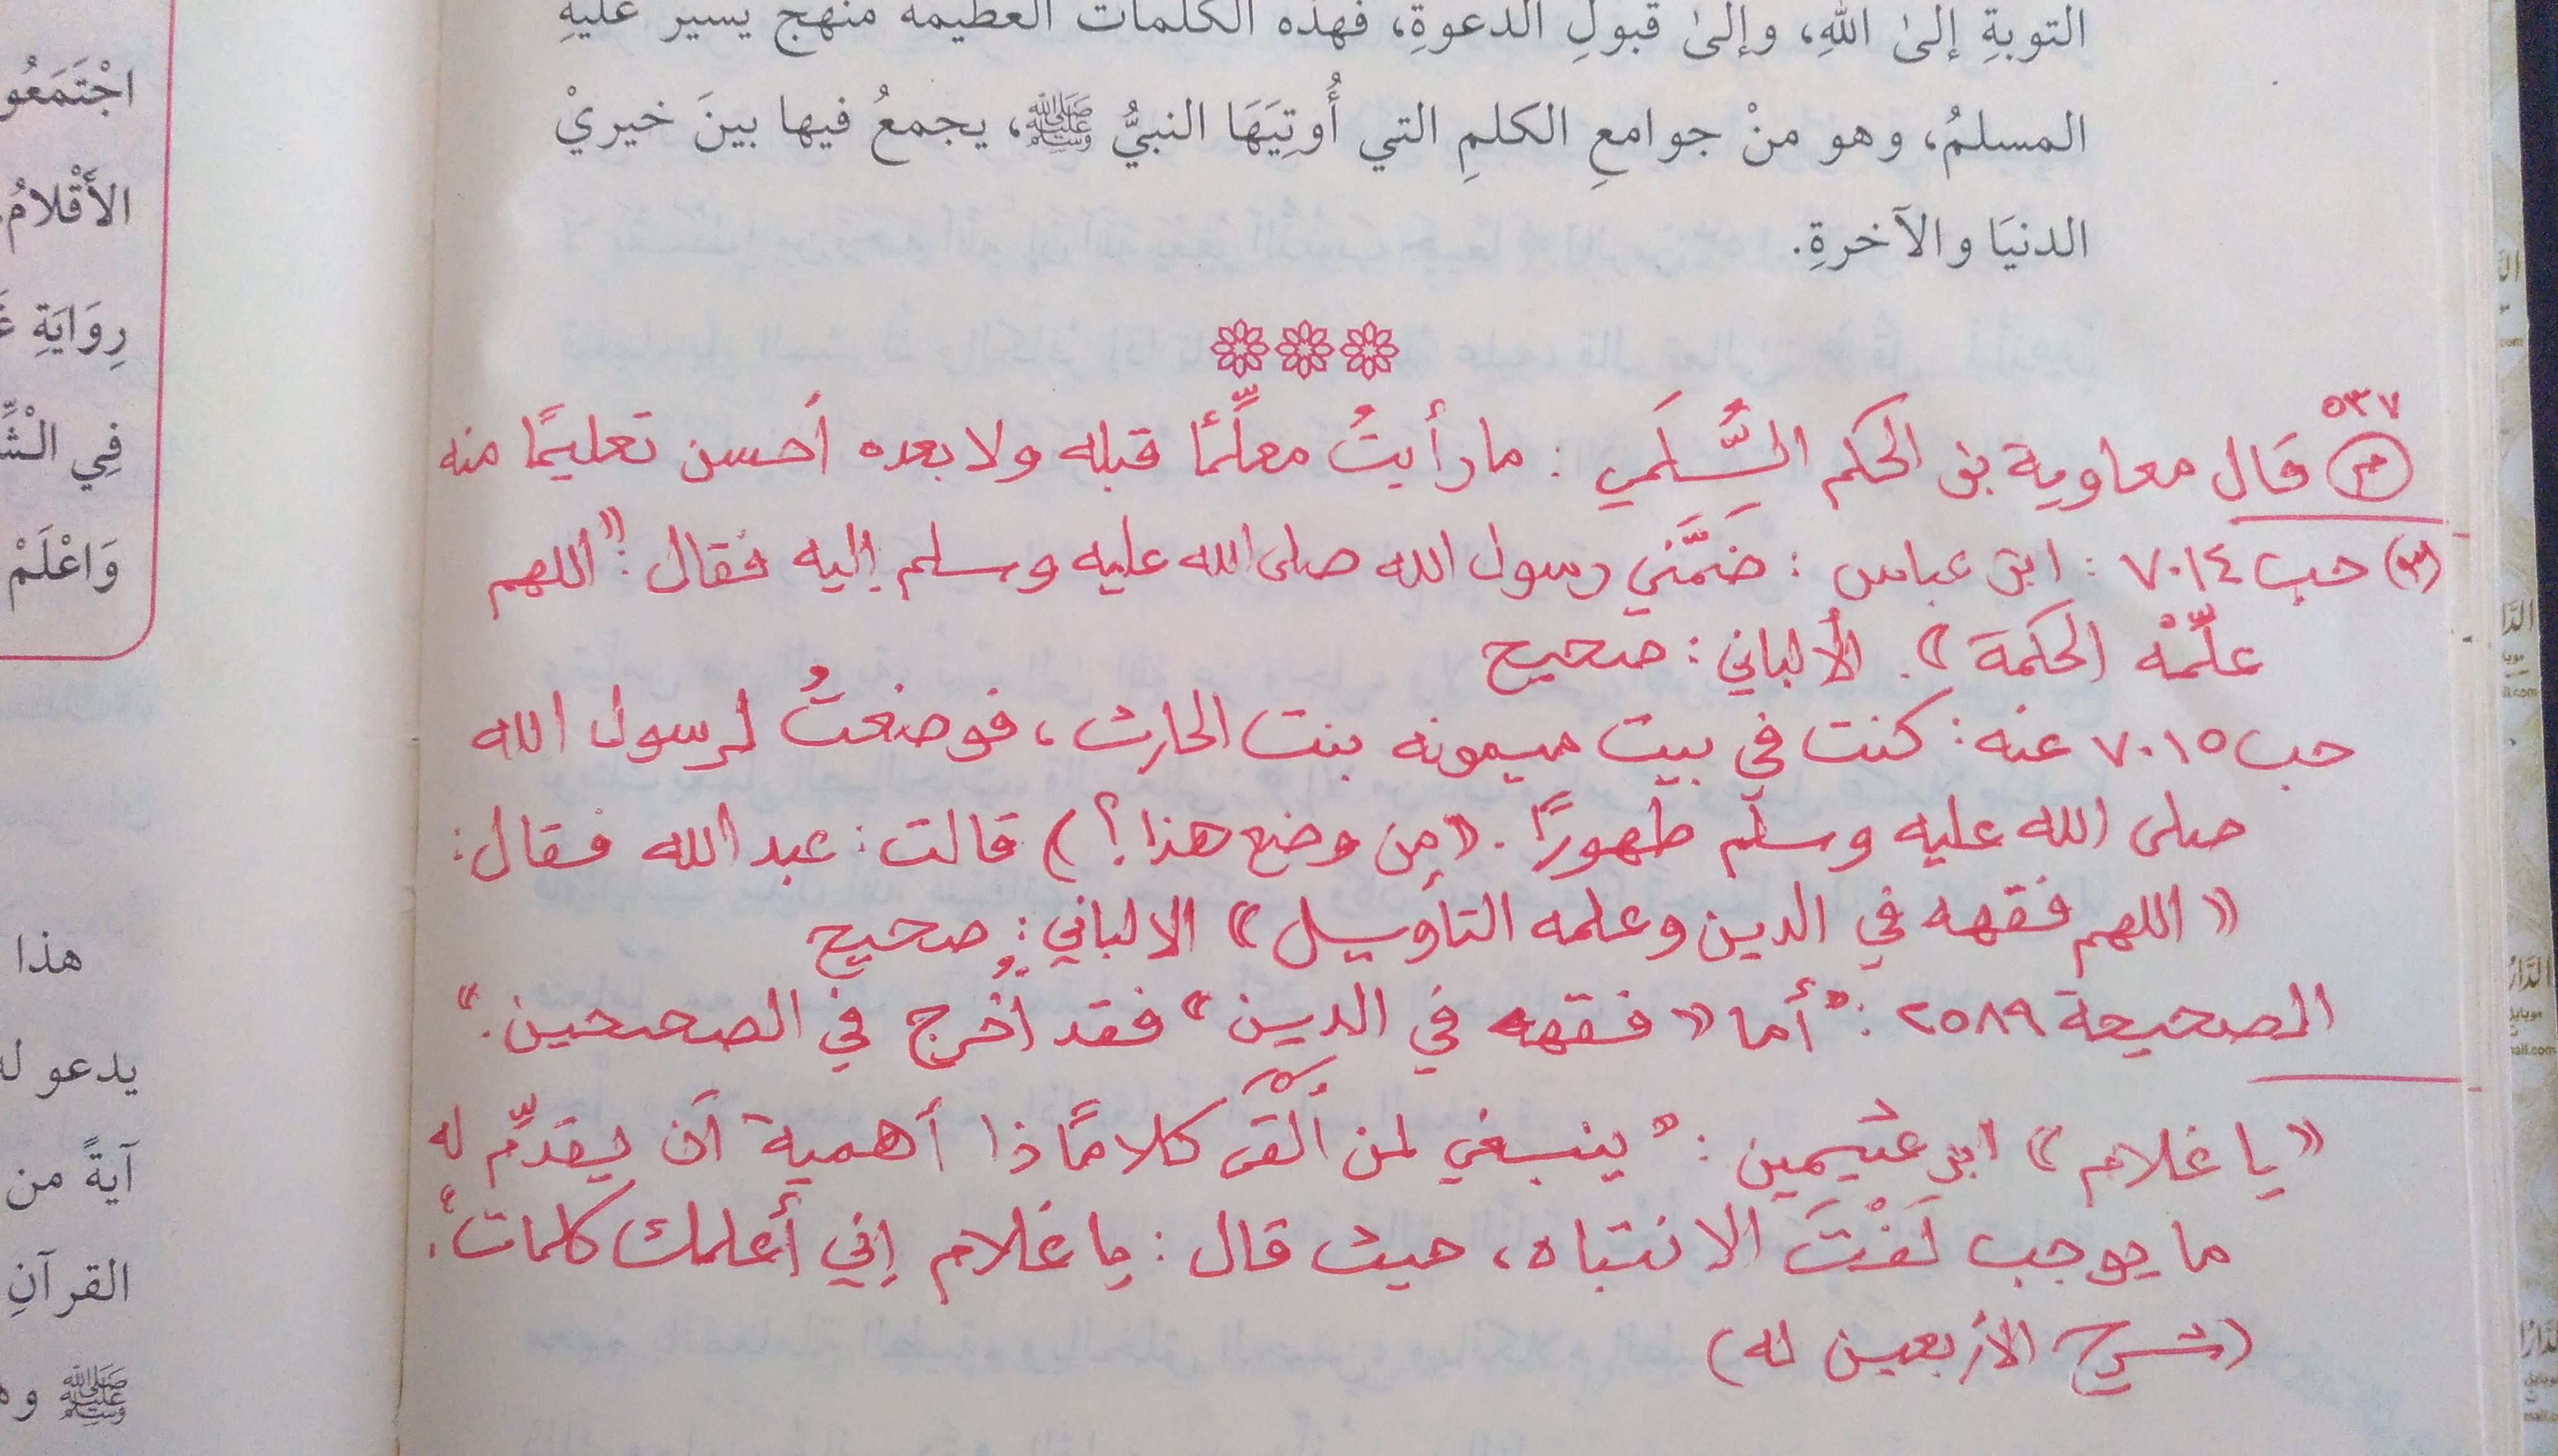 التوبةِ إلىٰ اللهِ، وإلىٰ قبولِ الدعوةِ، فهذه الكلمات العظيمة منهج يسير عليهِ
المسلمُ، وهو منْ جوامعِ الكلمِ التي أُوتِيَهَا النبيُّ ﷺ، يجمعُ فيها بينَ خيريْ
الدنيَا والآخرةِ.
٥٣٧
م قال معاوية بن الحكم السُّلَمي : ما رأيتُ معلِّمًا قبله ولا بعده أحسن تعليمًا منه
(٣) حب ٧٠١٤ : ابن عباس : ضَمَّني رسول الله صلى الله عليه وسلم إليه فقال : «اللهم
علِّمْه الحكمة». الألباني : صحيح
حب ٧٠١٥ عنه : كنت في بيت ميمونه بنت الحارث ، فوضعتُ لرسول الله
صلى الله عليه وسلّم طهورًا . «من وضع هذا؟» قالت : عبد الله فقال :
«اللهم فقهه في الدين وعلمه التأويل» الالباني : صحيح
الصحيحة ٢٥٨٩ : "أما «فقهه في الدين» فقد أُخرج في الصحيحين ."
«يا غلام» ابن عثيمين : "ينبغي لمن أَلْقَى كلامًا ذا أهمية أن يقدِّم له
ما يوجب لَفْتَ الانتباه ، حيث قال : يا غلام إني أعلمك كلمات ."
(شرح الأربعين له)
اجْتَمَعُو
الأَقْلامُ
رِوَايَةِ
فِي
وَاعْلَمْ
هذا
يدعو
آيةً من
القرآنِ
ﷺ